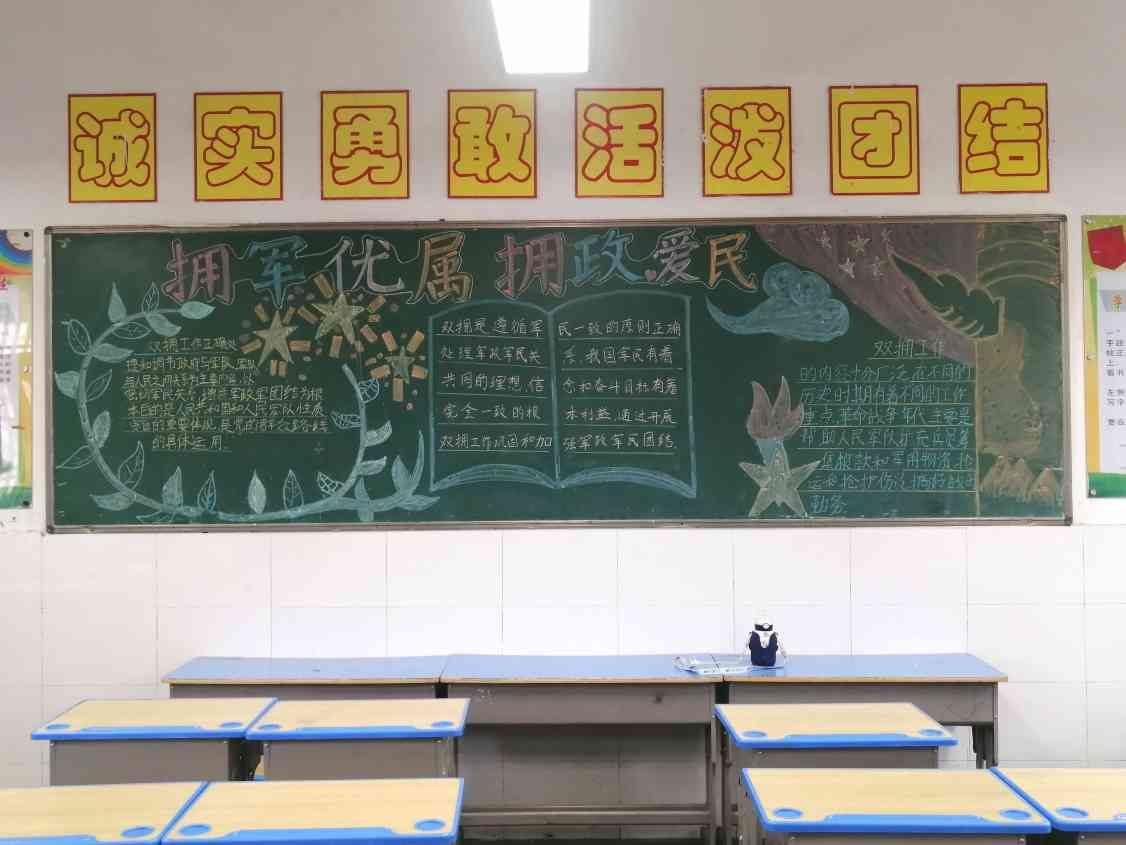 诚实勇敢活泼团结
拥军优属 拥政爱民
双拥工作正确处
理和调节政府与军队、军队
与人民之间关系为主要内容,以
密切军民关系,增强军政军团结为根
本目的是人民共和国和人民军队性质
宗旨的重要体现,是党的
的具体运用.
双拥是遵循军
处理军政军民关
共同的理想、信
完全一致的根
双拥工作巩固和加
民一致的原则正确
系,我国军民有着
念和奋斗目标有着
本利益,通过开展
强军政军民团结.
双拥工作
的内容十分广泛在不同的
历史时期有着不同的工作
重点,革命战争年代主要是
帮助人民军队扩充兵员筹
集粮款和军用物资,抢
运和抢护伤员,搞好战
勤务